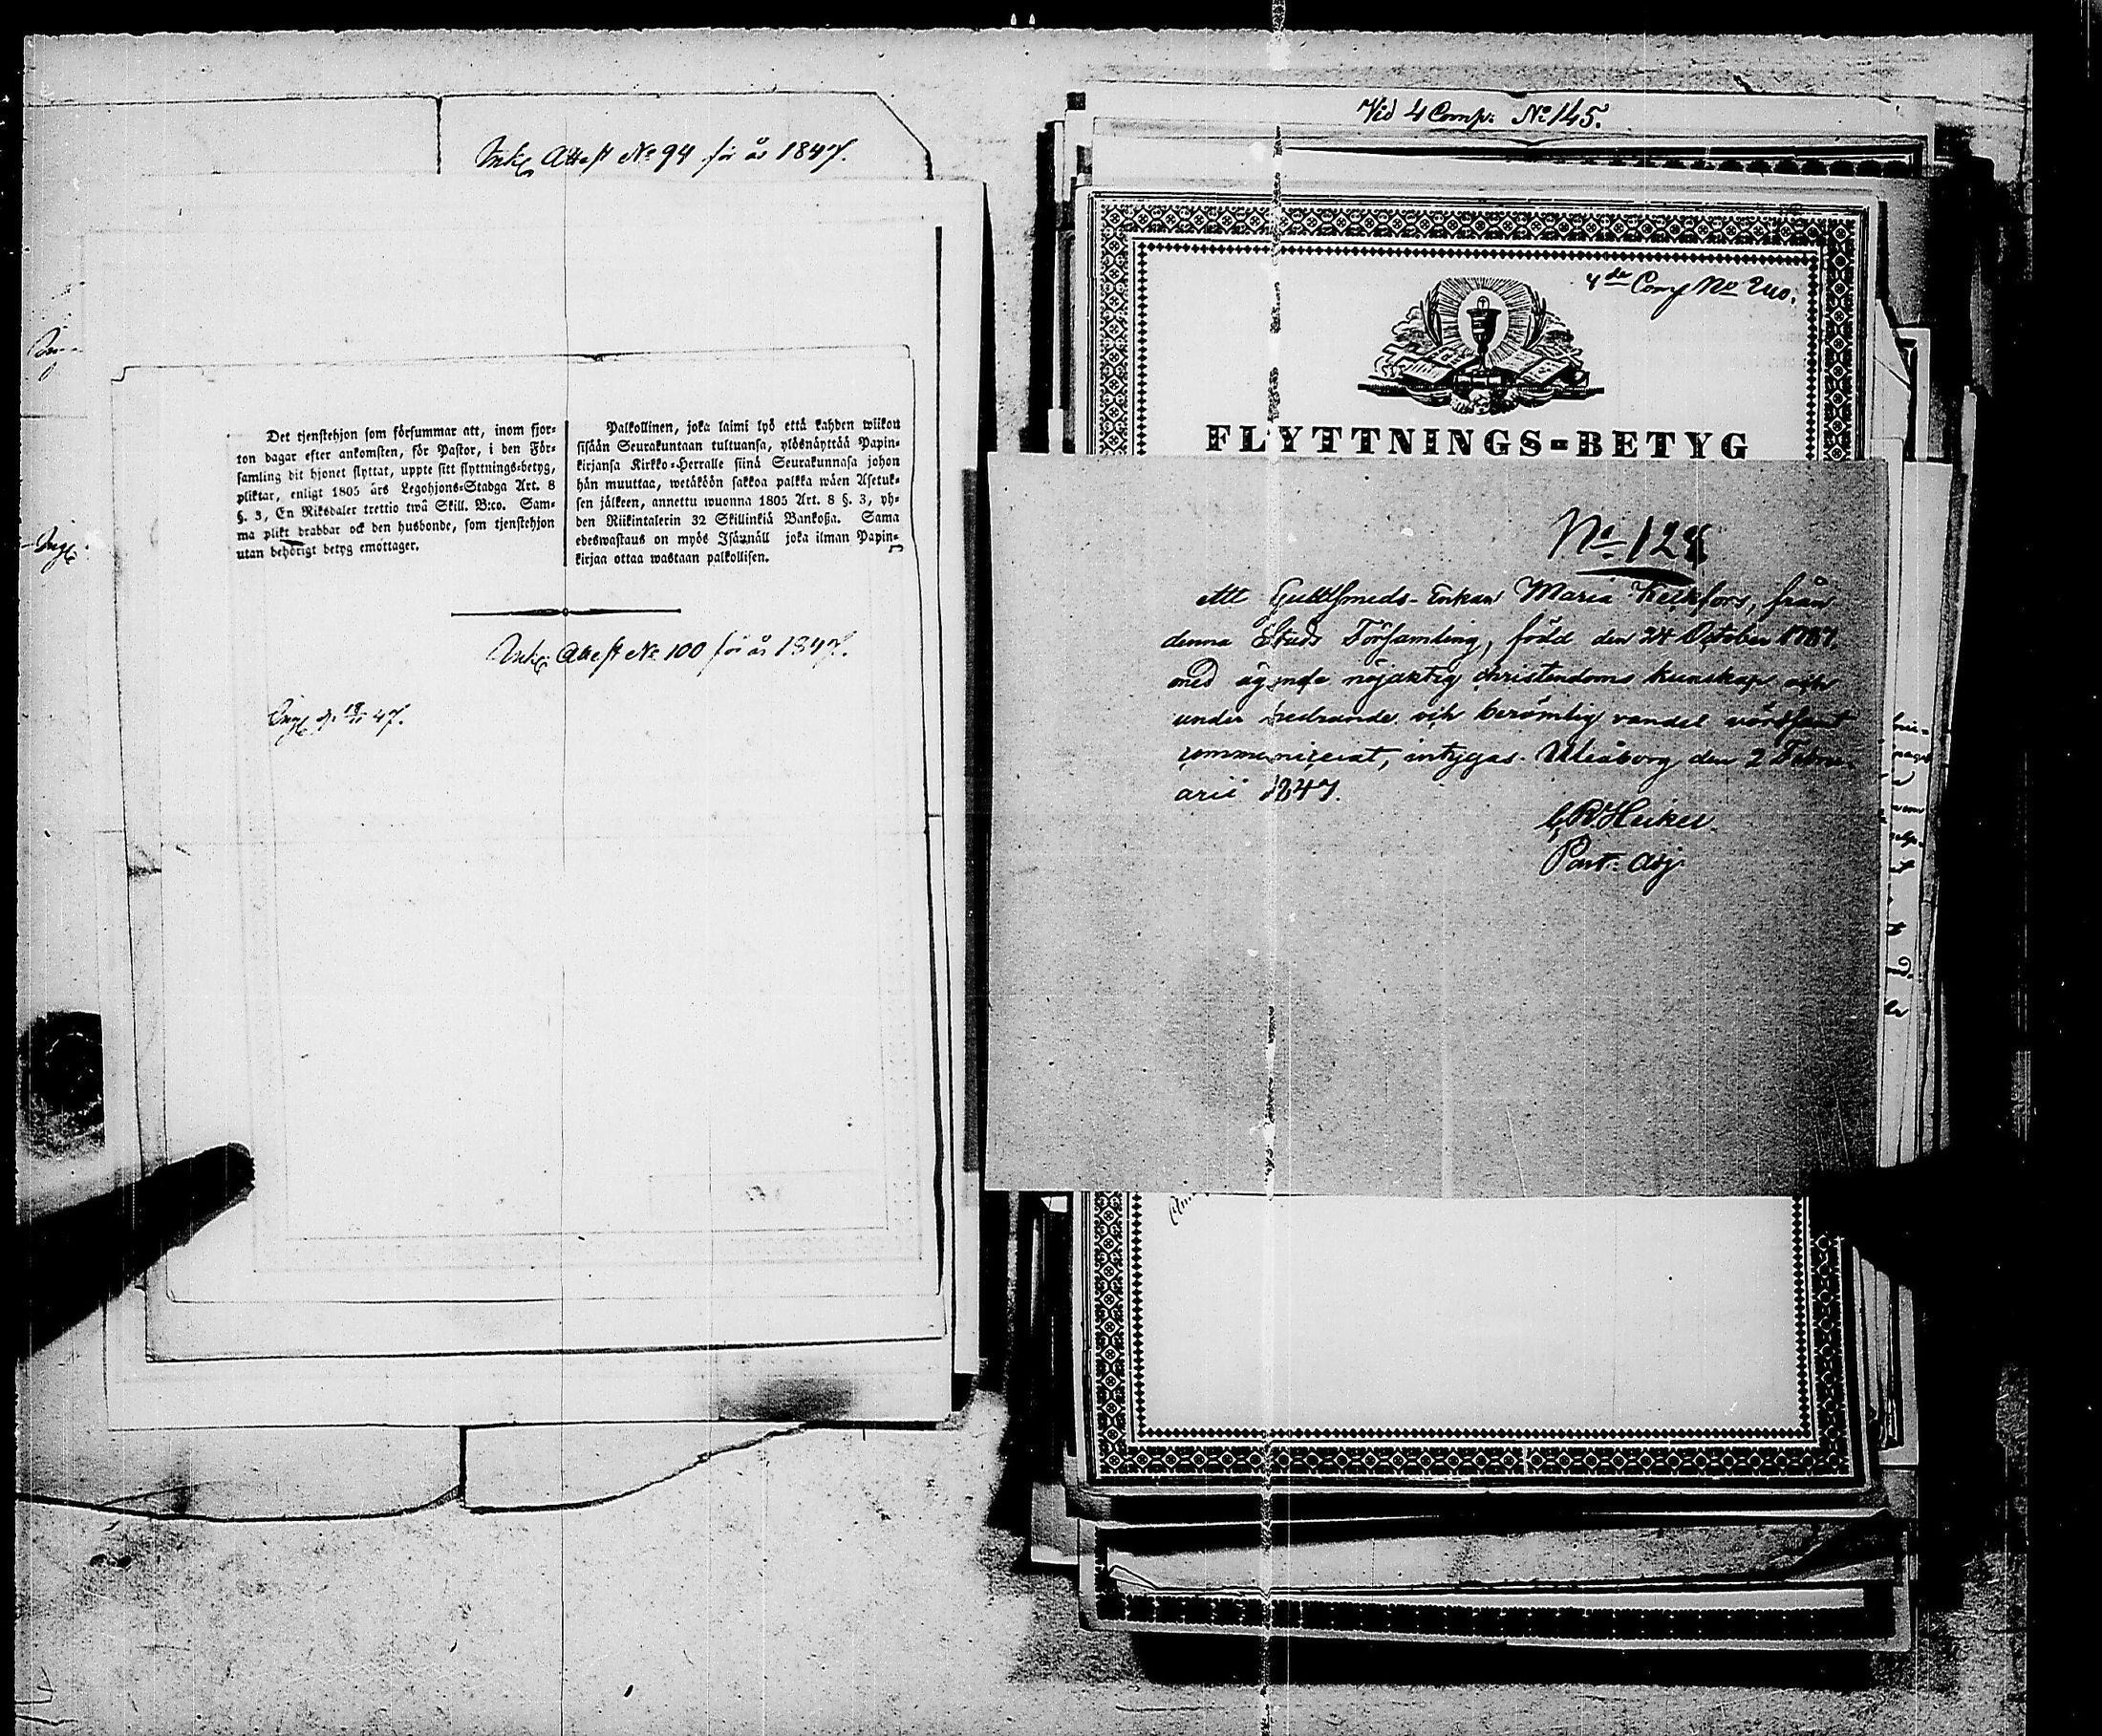 Ink. Attest No 94 för år 1847.
Det tjenstehjon som försummar att, inom fjor-
ton dagar efter ankomsten, för Pastor, i den För-
samling dit hjonet flyttat, uppte sitt flyttnings-betyg,
pliktar, enligt 1805 års Legohjons-Stadga Art. 8
§. 3, En Riksdaler trettio twå Skill. B:co. Sam-
ma plikt drabbar ock den husbonde, som tjenstehjon
utan behörigt betyg emottager.
Palkollinen, joka laimi lyö että kahden wiikon
sisään Seurakuntaan tultuansa, ylösnäyttää Papin-
kirjansa Kirkko-Herralle siinä Seurakunnasa johon
hän muuttaa, wetäköön sakkoa palkka wäen Asetuk-
sen jälkeen, annettu wuonna 1805 Art. 8 §. 3, yh-
den Riikintalerin 32 Skillinkiä Bankoßa. Sama
edeswastaus on myös Isännäll joka ilman Papin-
kirjaa ottaa wastaan palkollisen.
Ink. Attest No 100 för år 1847.
47.
Vid 4 Comp. No 145.
4de Comp No 240.
FLYTTNINGS-BETYG
No 128
Att Guldsmeds-Enkan Maria från
denna Stads Församling, född den 24 October 1787,
med ägande nöjaktig christendoms kunskap och
under hedrande och berömlig vandel vördsamt
communicerat, intygas. Uleåborg den 2 Febru-
arii 1847.
Heikel
Past. Adj.